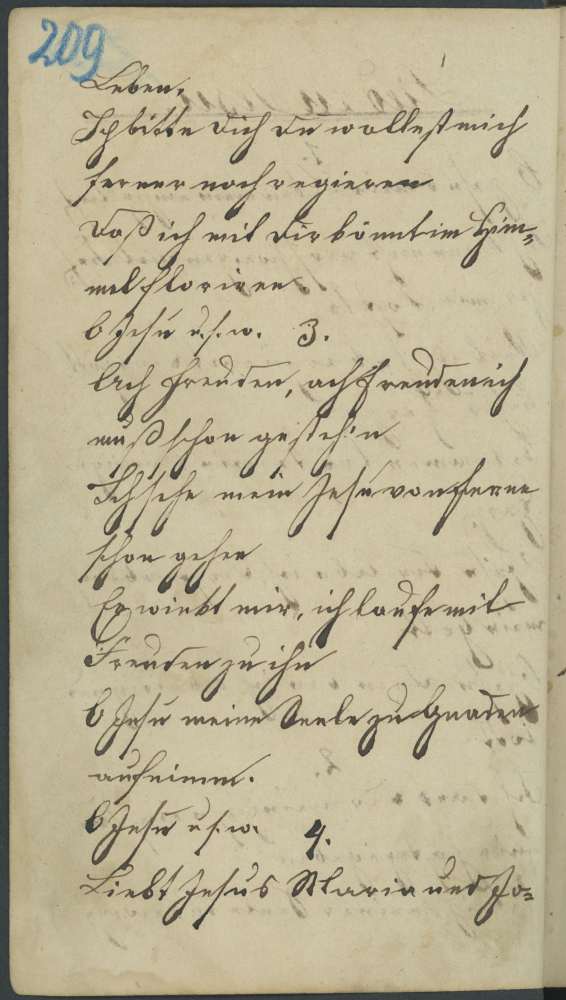 209
Leben.
Ich bitte dich du wollest mich
ferner noch regieren
Daß ich mit dir könnt im Him=
mel floriren
O Jesu u.s.w. 3.
Ach Freuden, ach Freuden ich
muß schon gesteh'n
Ich sehe mein Jesu von ferne
schon gehen
Er winkt mir, ich laufe mit
Freuden zu ihn
O Jesu meine Seele zu Gnaden
aufnimm.
O Jesu u.s.w. 4.
Liebt Jesus Maria und Jo=